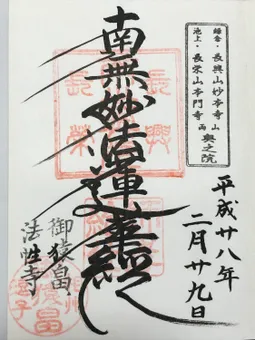 鎌倉・長興山妙本寺
池上・長栄山本門寺 両山奥之院
平成廿八年
二月廿九日
南無妙法蓮華経
長興
長榮
御猿畠
法性寺